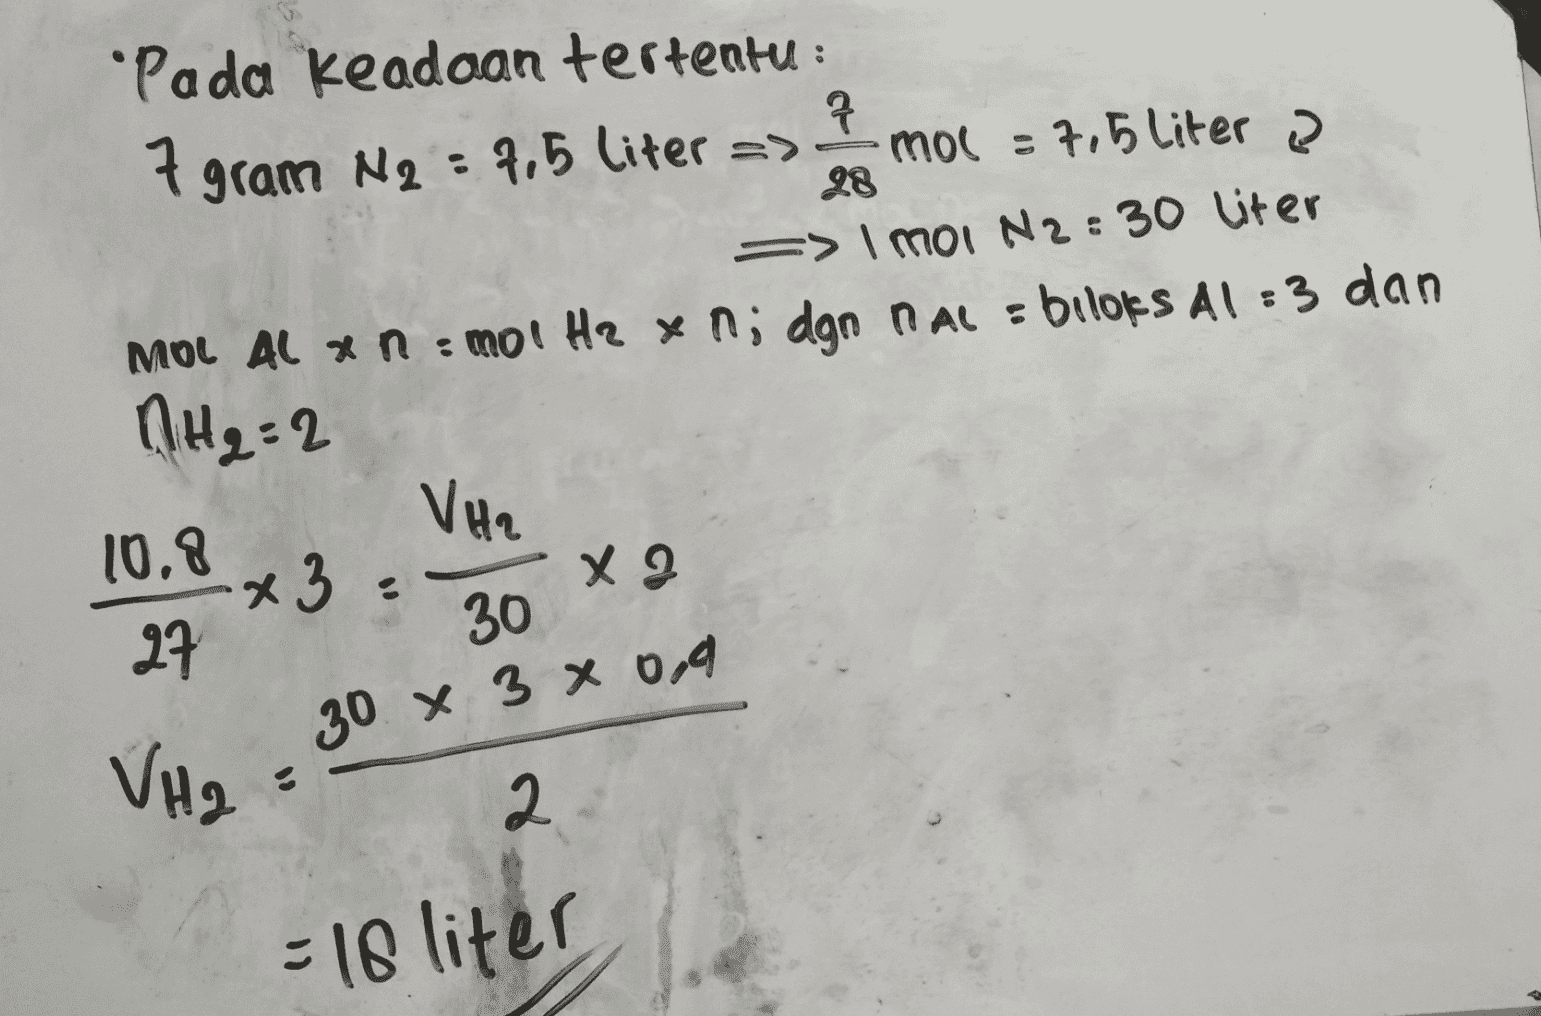 •Pada keadaan tertentu:
7 gram N2 = 7,5 liter => 7/28 mol = 7,5 liter
=> 1 mol N2 = 30 liter
mol Al x n = mol H2 x n; dgn n Al = biloks Al = 3 dan
nH2 = 2
10,8/27 x 3 = VH2/30 x 2
VH2 = 30 x 3 x 0,4 / 2
= 18 liter